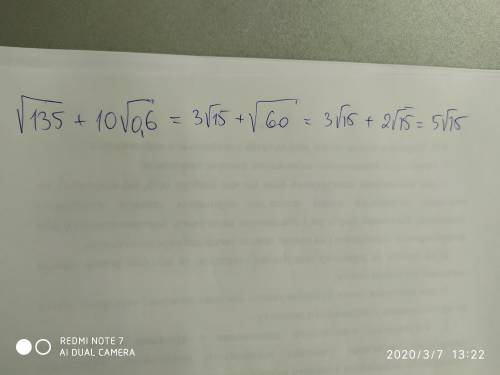 √135 + 10√0,6 = 3√15 + √60 = 3√15 + 2√15 = 5√15
REDMI NOTE 7
AI DUAL CAMERA
2020/3/7 13:22